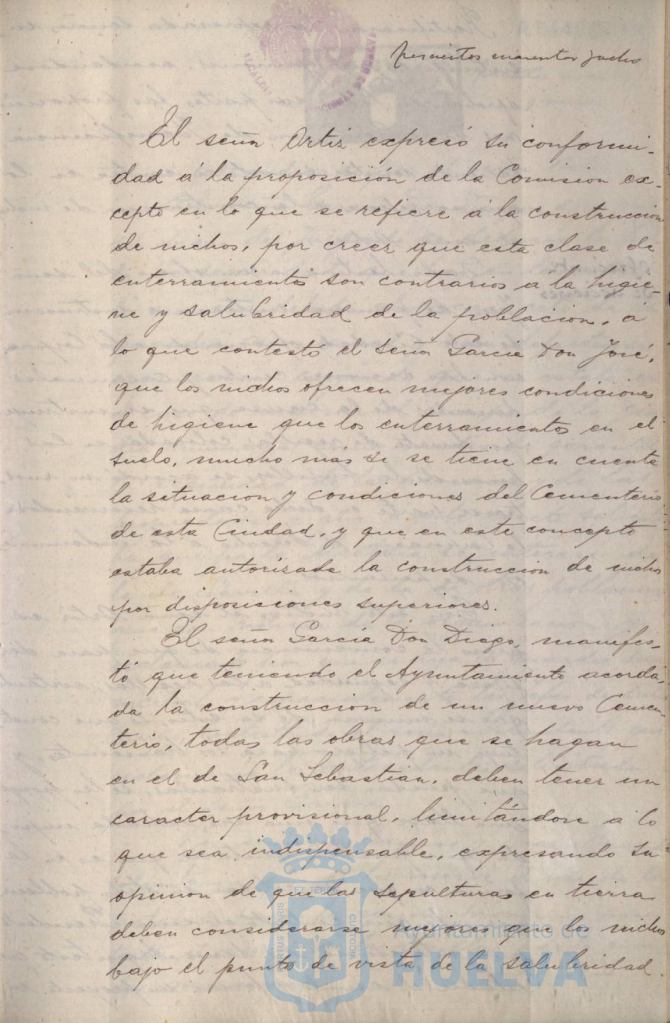 El señor Ortiz expresó su conformi-
dad á la proposición de la Comision ex-
cepto en lo que se refiere á la construccion
de nichos, por creer que esta clase de
enterramientos son contrarios a la higie-
ne y salubridad de la poblacion, a
lo que contestó el señor Garcia Don José,
que los nichos ofrecen mejores condiciones
de higiene que los enterramientos en el
suelo, mucho más si se tiene en cuenta
la situacion y condiciones del Cementerio
de esta Ciudad, y que en este concepto
estaba autorizada la construccion de nichos
por disposiciones superiores.
El señor Garcia Don Diego, manifes-
tó que teniendo el Ayuntamiento acorda-
da la construccion de un nuevo Cemen-
terio, todas las obras que se hagan
en el de San Sebastian, deben tener un
caracter provisional, limitándose a lo
que sea indispensable, expresando su
opinion de que las sepulturas en tierra
deben considerarse mejores que los nichos
bajo el punto de vista de la salubridad.
Ayuntamiento de
HUELVA